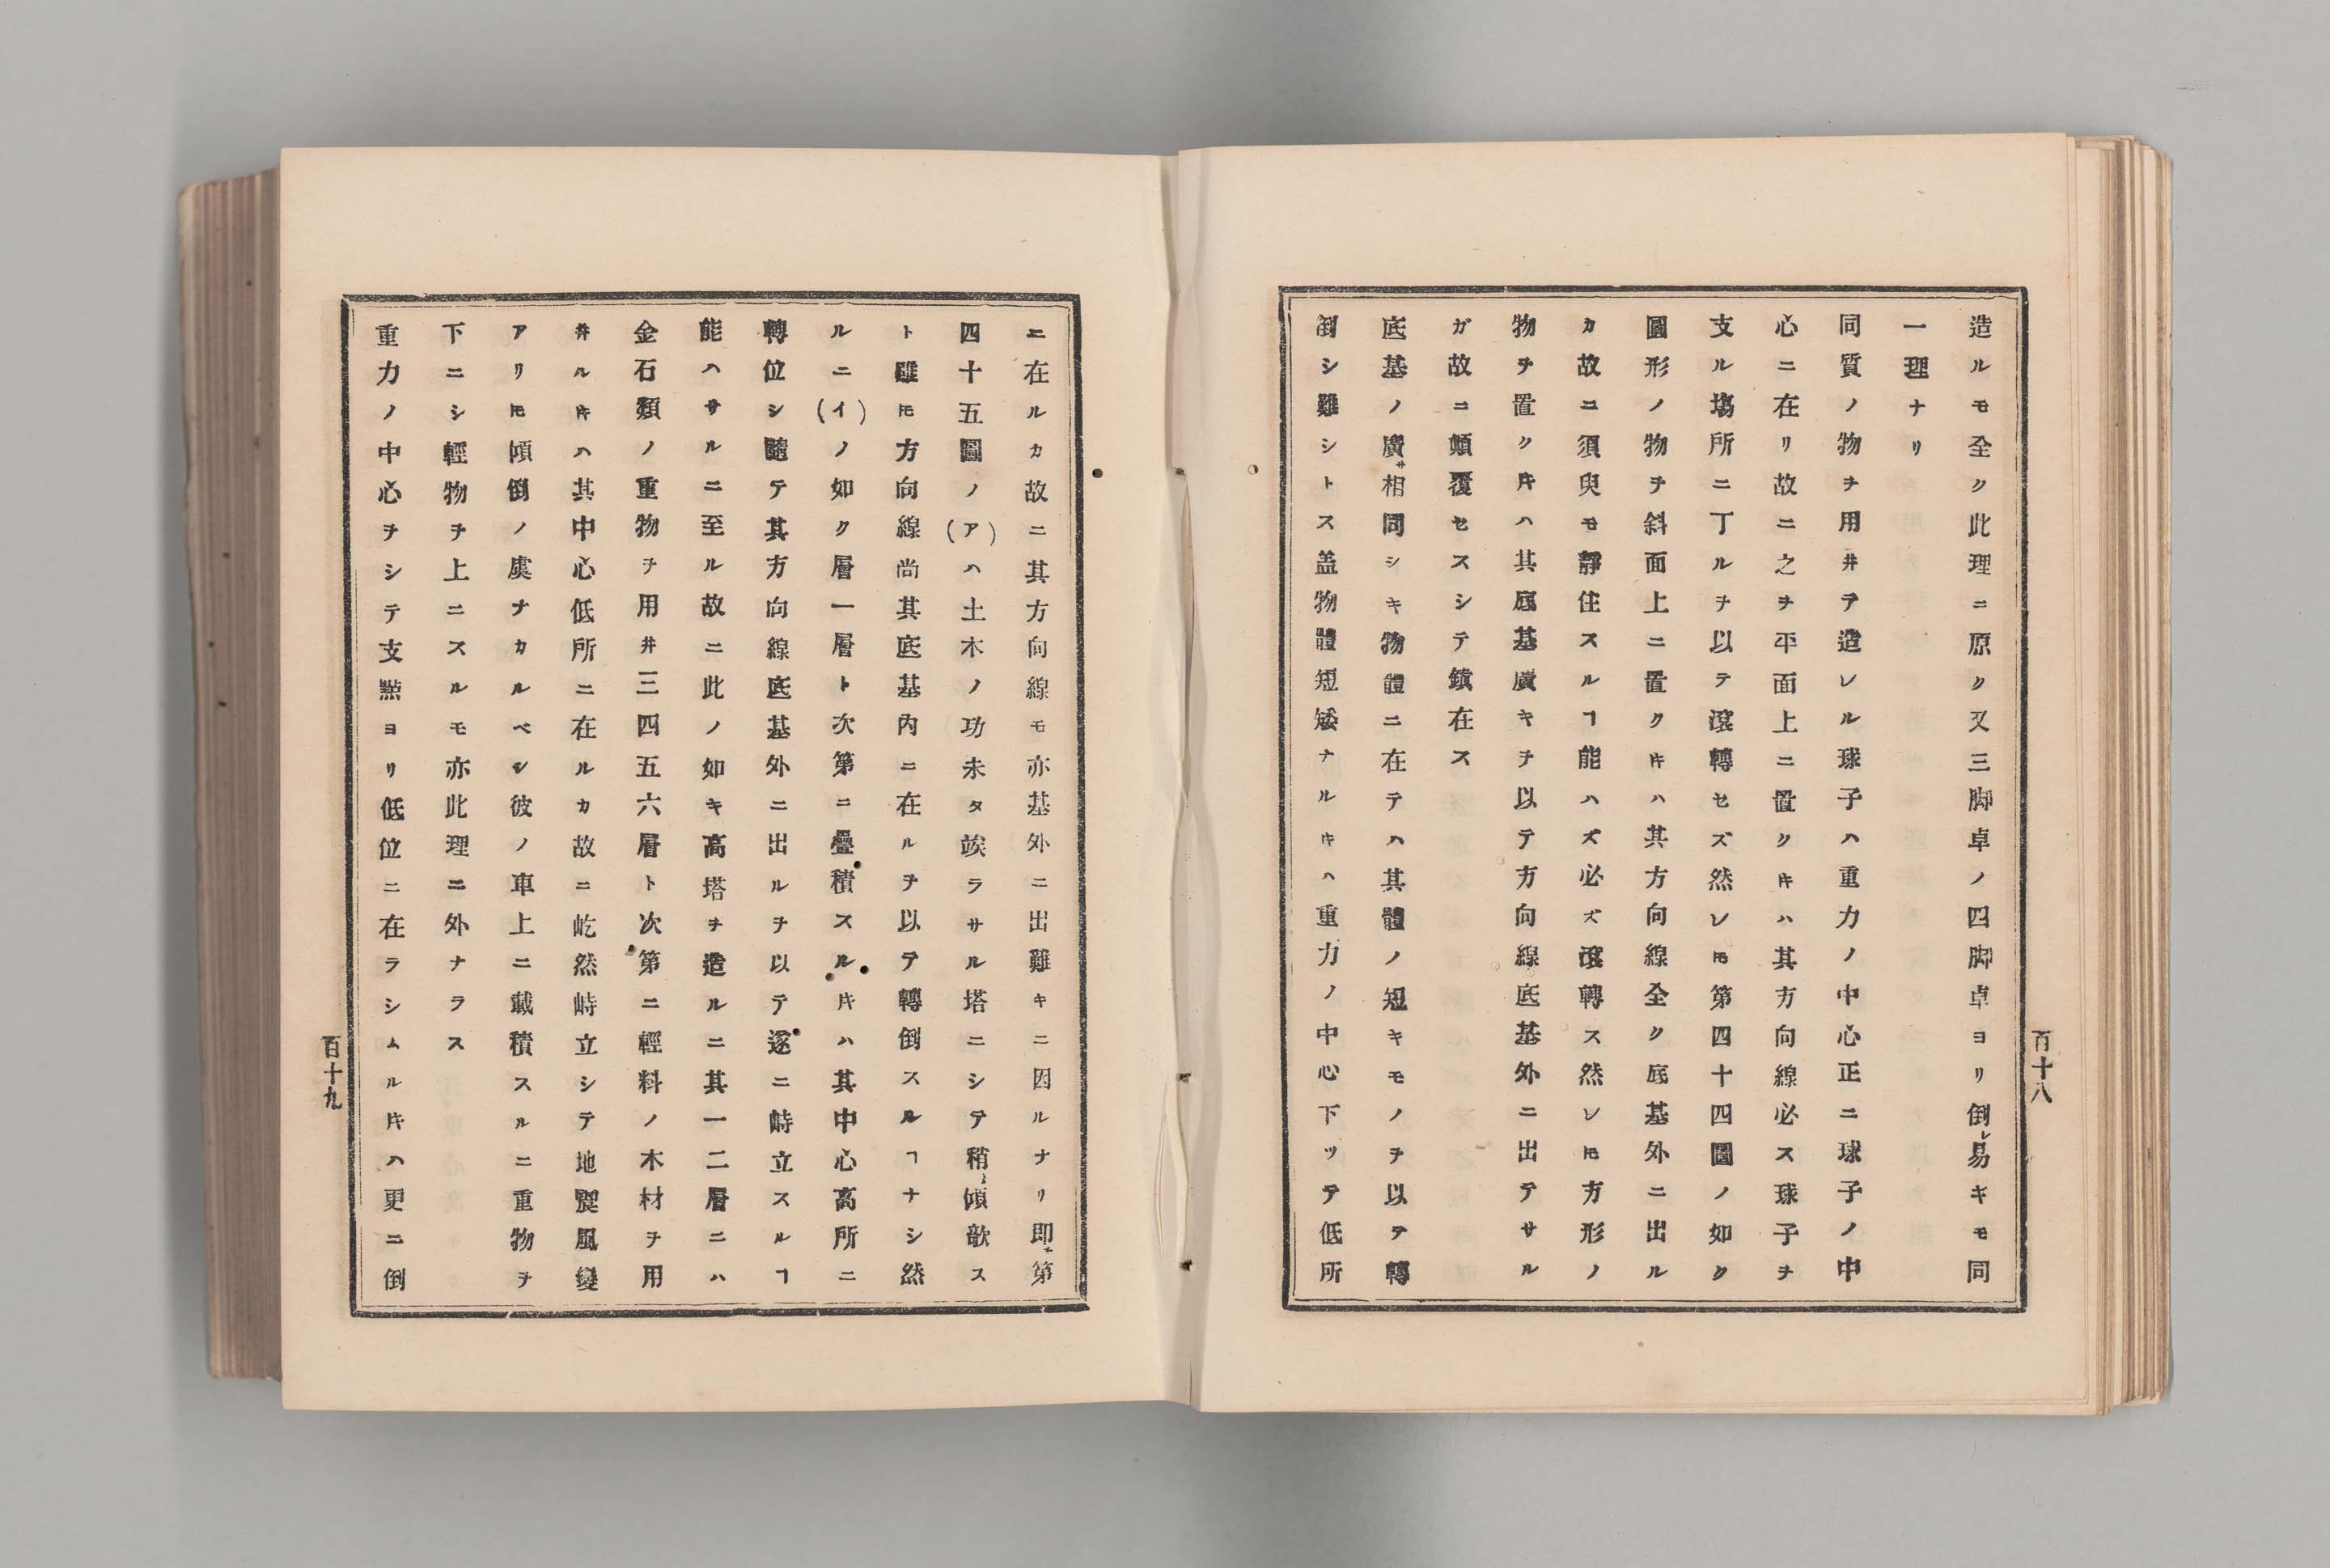 造ルモ全ク此理ニ原ク又三脚卓ノ四脚卓ヨリ倒レ易キモ同
一理ナリ
同質ノ物ヲ用井テ造レル球子ハ重力ノ中心正ニ球子ノ中
心ニ在リ故ニ之ヲ平面上ニ置クキハ其方向線必ス球子ヲ
支ル塲所ニ丁ルヲ以テ滾轉セズ然レ𪜈第四十四圖ノ如ク
圓形ノ物ヲ斜面上ニ置クキハ其方向線全ク底基外ニ出ル
カ故ニ須臾モ靜住スルヿ能ハズ必ズ滾轉ス然レ𪜈方形ノ
物ヲ置クキハ其底基廣キヲ以テ方向線底基外ニ出テサル
ガ故ニ顛覆セスシテ鎭在ス
底基ノ廣サ相同シキ物體ニ在テハ其體ノ短キモノヲ以テ轉
倒シ難シトス盖物體短矮ナルキハ重力ノ中心下ツテ低所
百十八
ニ在ルカ故ニ其方向線モ亦基外ニ出難キニ因ルナリ即チ第
四十五圖ノ(ア)ハ土木ノ功未タ竢ラサル塔ニシテ稍〻傾欹ス
ト雖𪜈方向線尚其底基內ニ在ルヲ以テ轉倒スルヿナシ然
ルニ(イ)ノ如ク層一層ト次第ニ疊積スルキハ其中心高所ニ
轉位シ隨テ其方向線底基外ニ出ルヲ以テ遂ニ峙立スルヿ
能ハサルニ至ル故ニ此ノ如キ高塔ヲ造ルニ其一二層ニハ
金石類ノ重物ヲ用井三四五六層ト次第ニ輕料ノ木材ヲ用
井ルキハ其中心低所ニ在ルカ故ニ屹然峙立シテ地震風變
アリ𪜈傾倒ノ虞ナカルベシ彼ノ車上ニ載積スルニ重物ヲ
下ニシ輕物ヲ上ニスルモ亦此理ニ外ナラス
重力ノ中心ヲシテ支點ヨリ低位ニ在ラシムルキハ更ニ倒
百十九